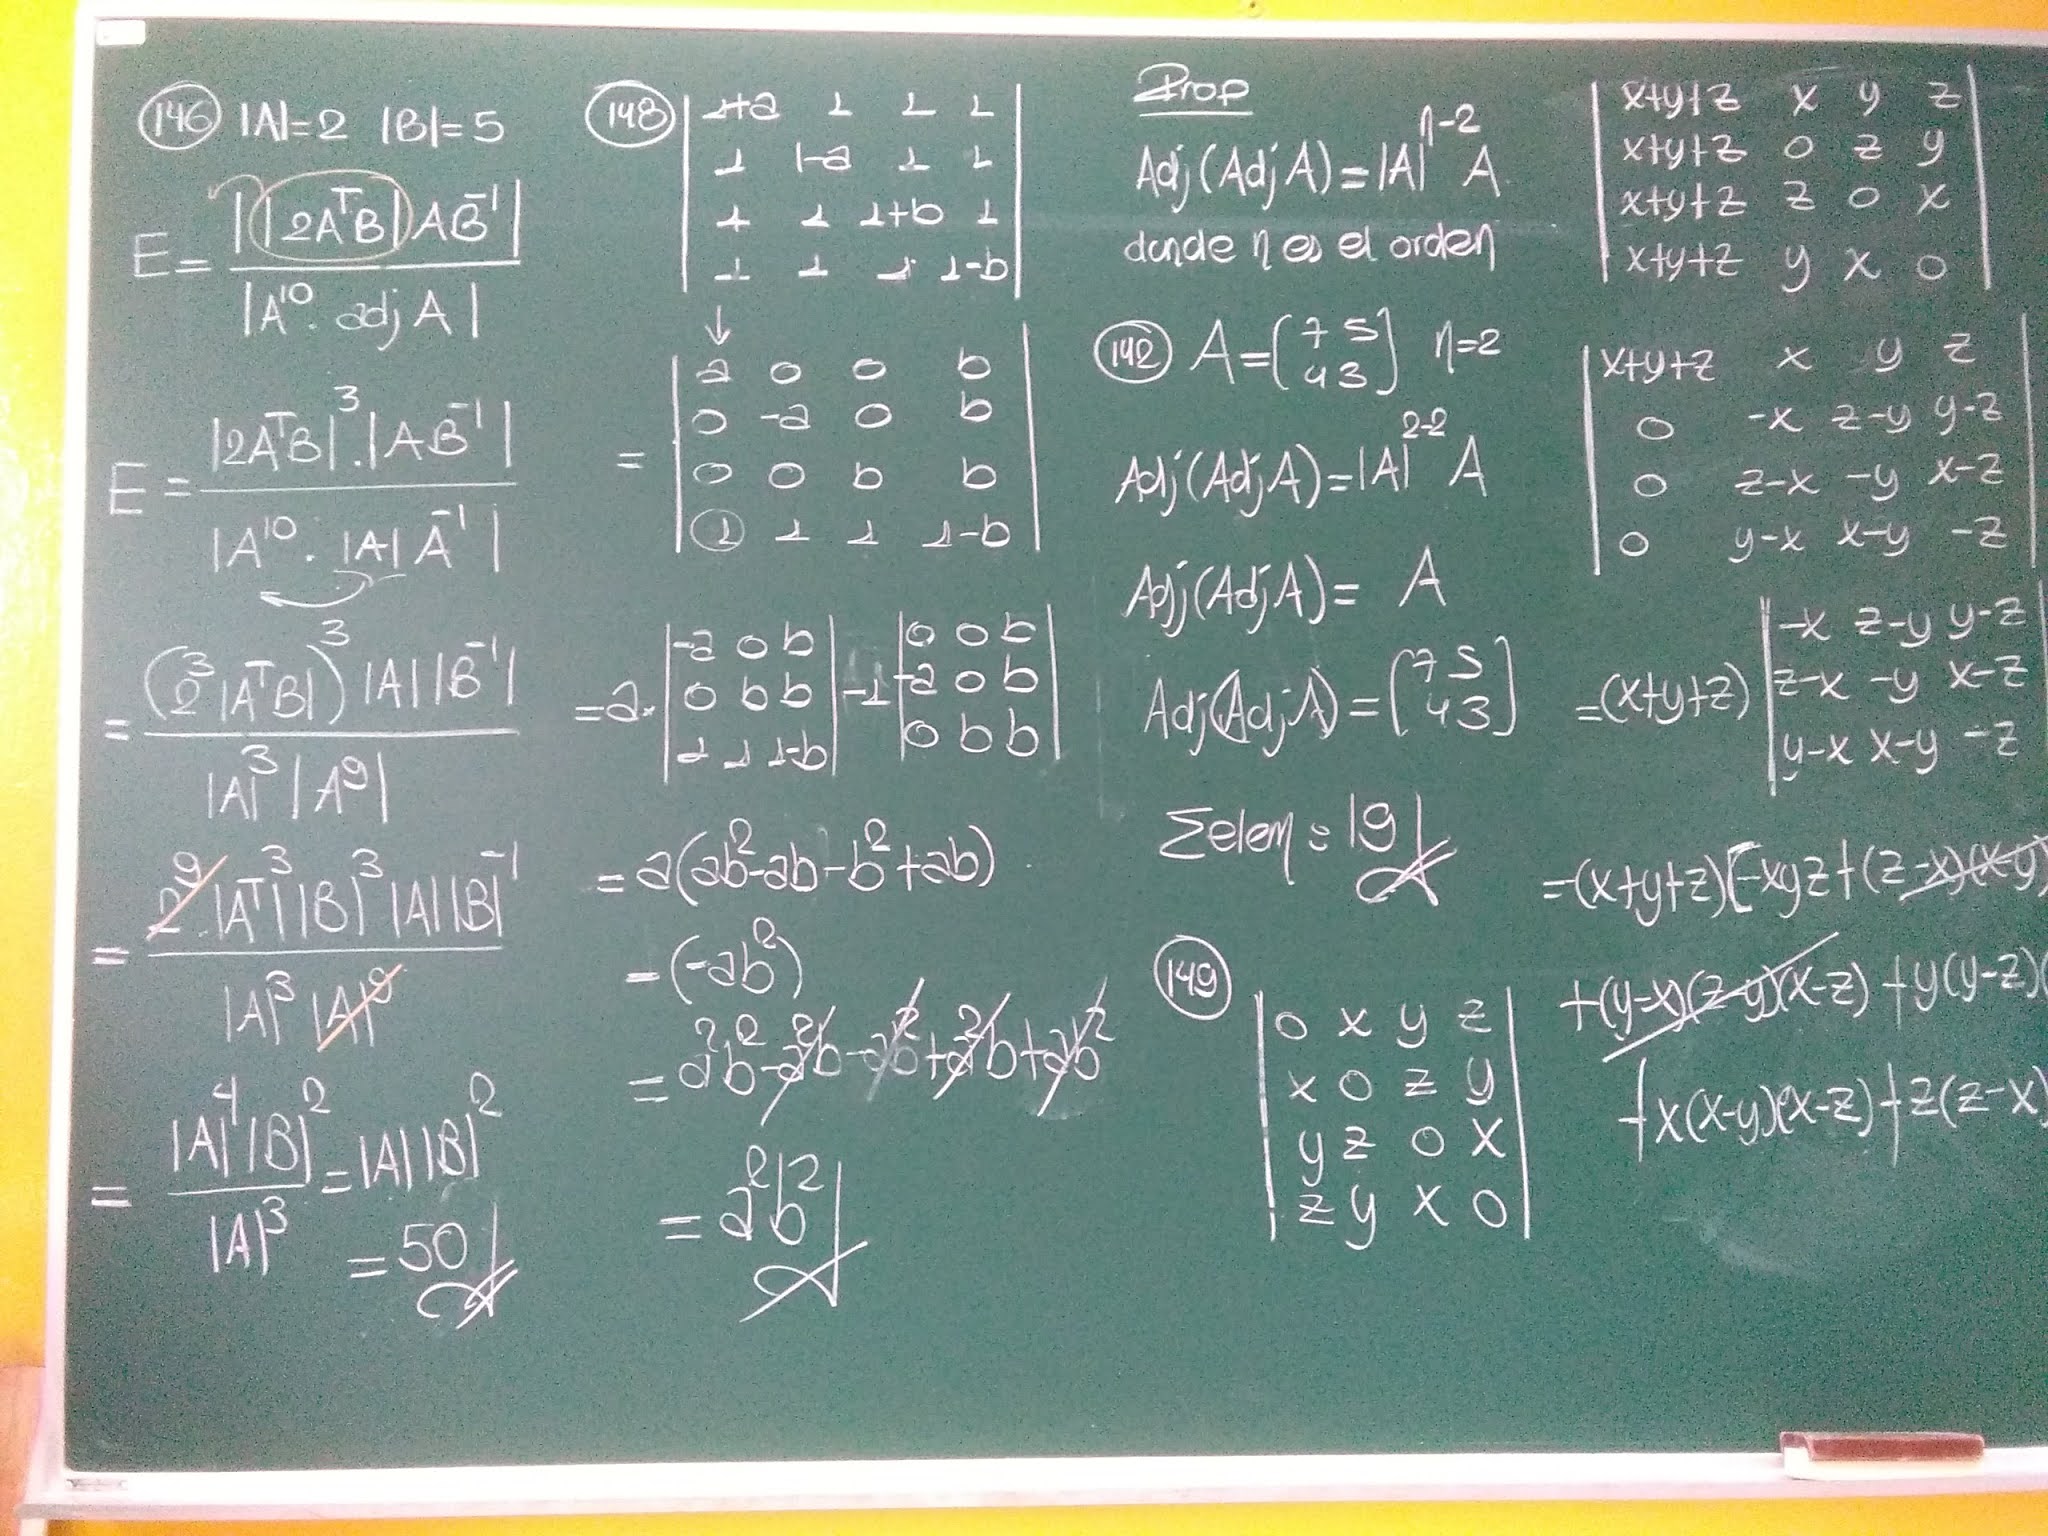 146 |A|=2 |B|=5
E= ||2AᵀB|AB⁻¹|
|A¹⁰. adj A|
E= |2AᵀB|³.|AB⁻¹|
|A¹⁰. |A| A⁻¹|
= (2³|AᵀB|)³|A||B⁻¹|
|A|³|A⁹|
= 2⁹.|Aᵀ|³|B|³|A||B|⁻¹
|A|³|A|⁹
= |A|⁴|B|² =|A||B|²
|A|³
=50
148
1+a 1 1 1
1 1-a 1 1
1 1 1+b 1
1 1 1 1-b
↓
a 0 0 b
0 -a 0 b
= 0 0 b b
1 1 1 1-b
-a 0 b 0 0 b
=a. 0 b b -1 -a 0 b
1 1 1-b 0 b b
=a(ab²-ab-b²+ab)
-(-ab²)
=a²b²-a²b-ab²+a²b+ab²
=a²b²
Prop
Adj(Adj A)=|A|ⁿ⁻² A.
donde η es el orden
142 A=[7 5 η=2
4 3]
Adj(Adj A)=|A|²⁻² A
Adj(Adj A)= A
Adj(Adj A)=[7 5
4 3]
Σelem=19
149
0 x y z
x 0 z y
y z 0 x
z y x 0
x+y+z x y z
x+y+z 0 z y
x+y+z z 0 x
x+y+z y x 0
x+y+z x y z
0 -x z-y y-z
0 z-x -y x-z
0 y-x x-y -z
-x z-y y-z
=(x+y+z) z-x -y x-z
y-x x-y -z
=(x+y+z)[-xyz+(z-x)(x-y)
+(y-x)(z-y)(x-z)+y(y-z)(
+x(x-y)(x-z)+z(z-x)